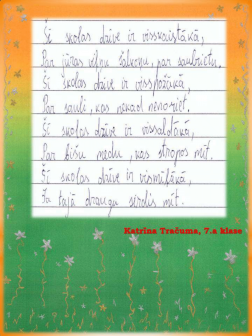 Šī skolas dzīve ir visskaistākā,
Par jūras viļņu šalkoņu, par saulrietu,
Šī skolas dzīve ir visspožākā,
Par sauli, kas nekad nenoriet.
Šī skolas dzīve ir vissaldākā,
Par bišu medu, kas stropos mīt.
Šī skolas dzīve ir vismīļākā,
Ja tajā draugu sirdis mīt.
Katrīna Tračuma, 7.a klase